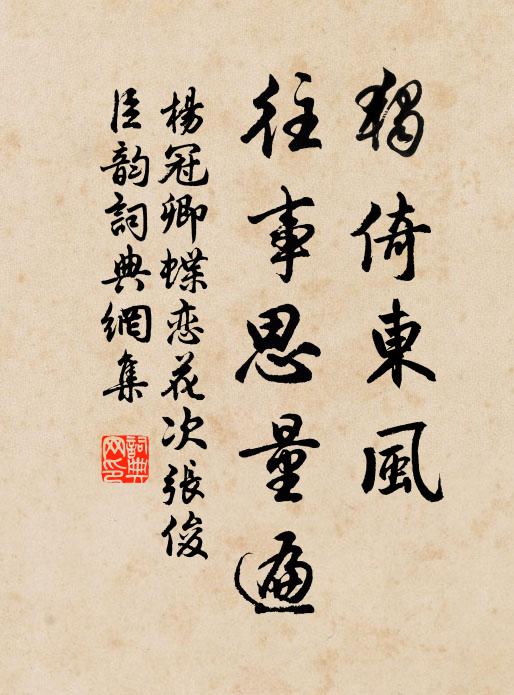 獨倚東風
往事思量遍
楊冠卿蝶恋花次張俊
臣韵詞典網集
詞典
网印